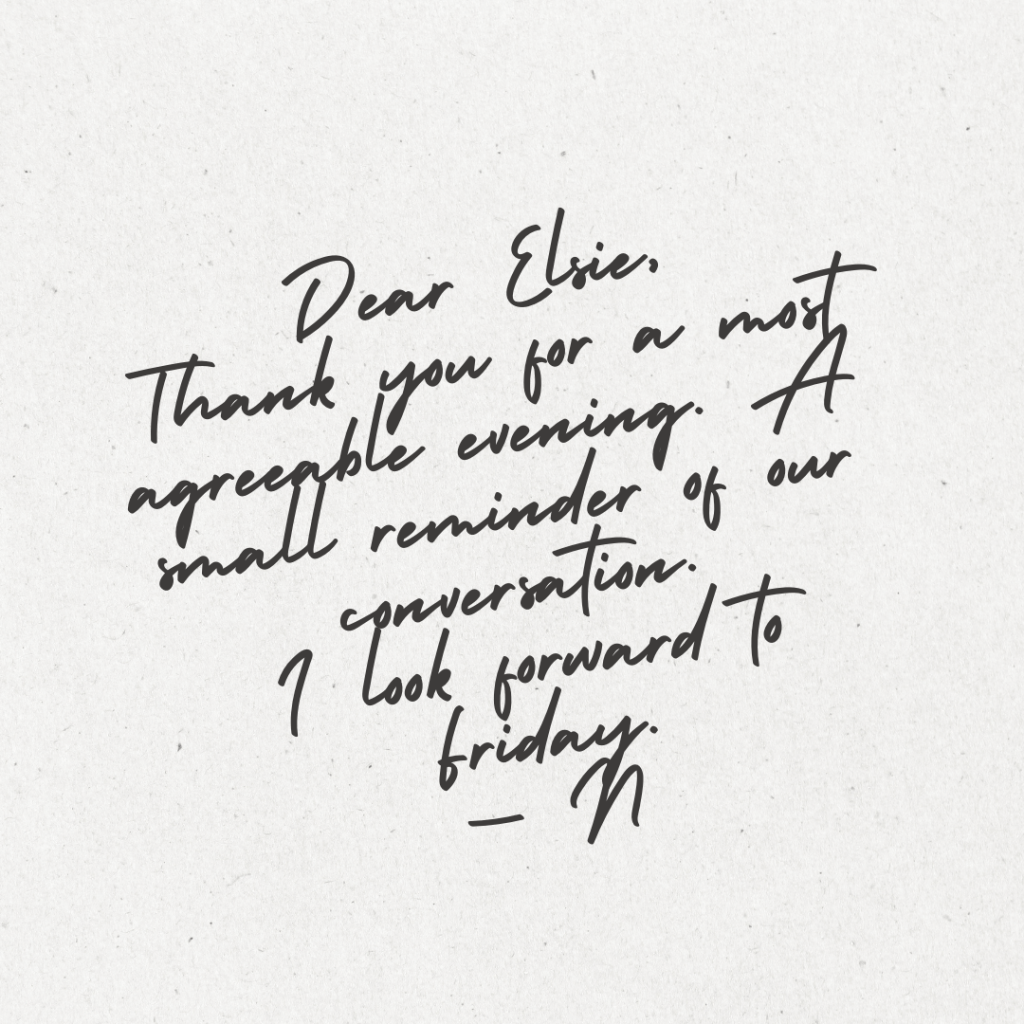 Dear Elsie,
Thank you for a most
agreeable evening. A
small reminder of our
conversation.
I look forward to
friday.
— N